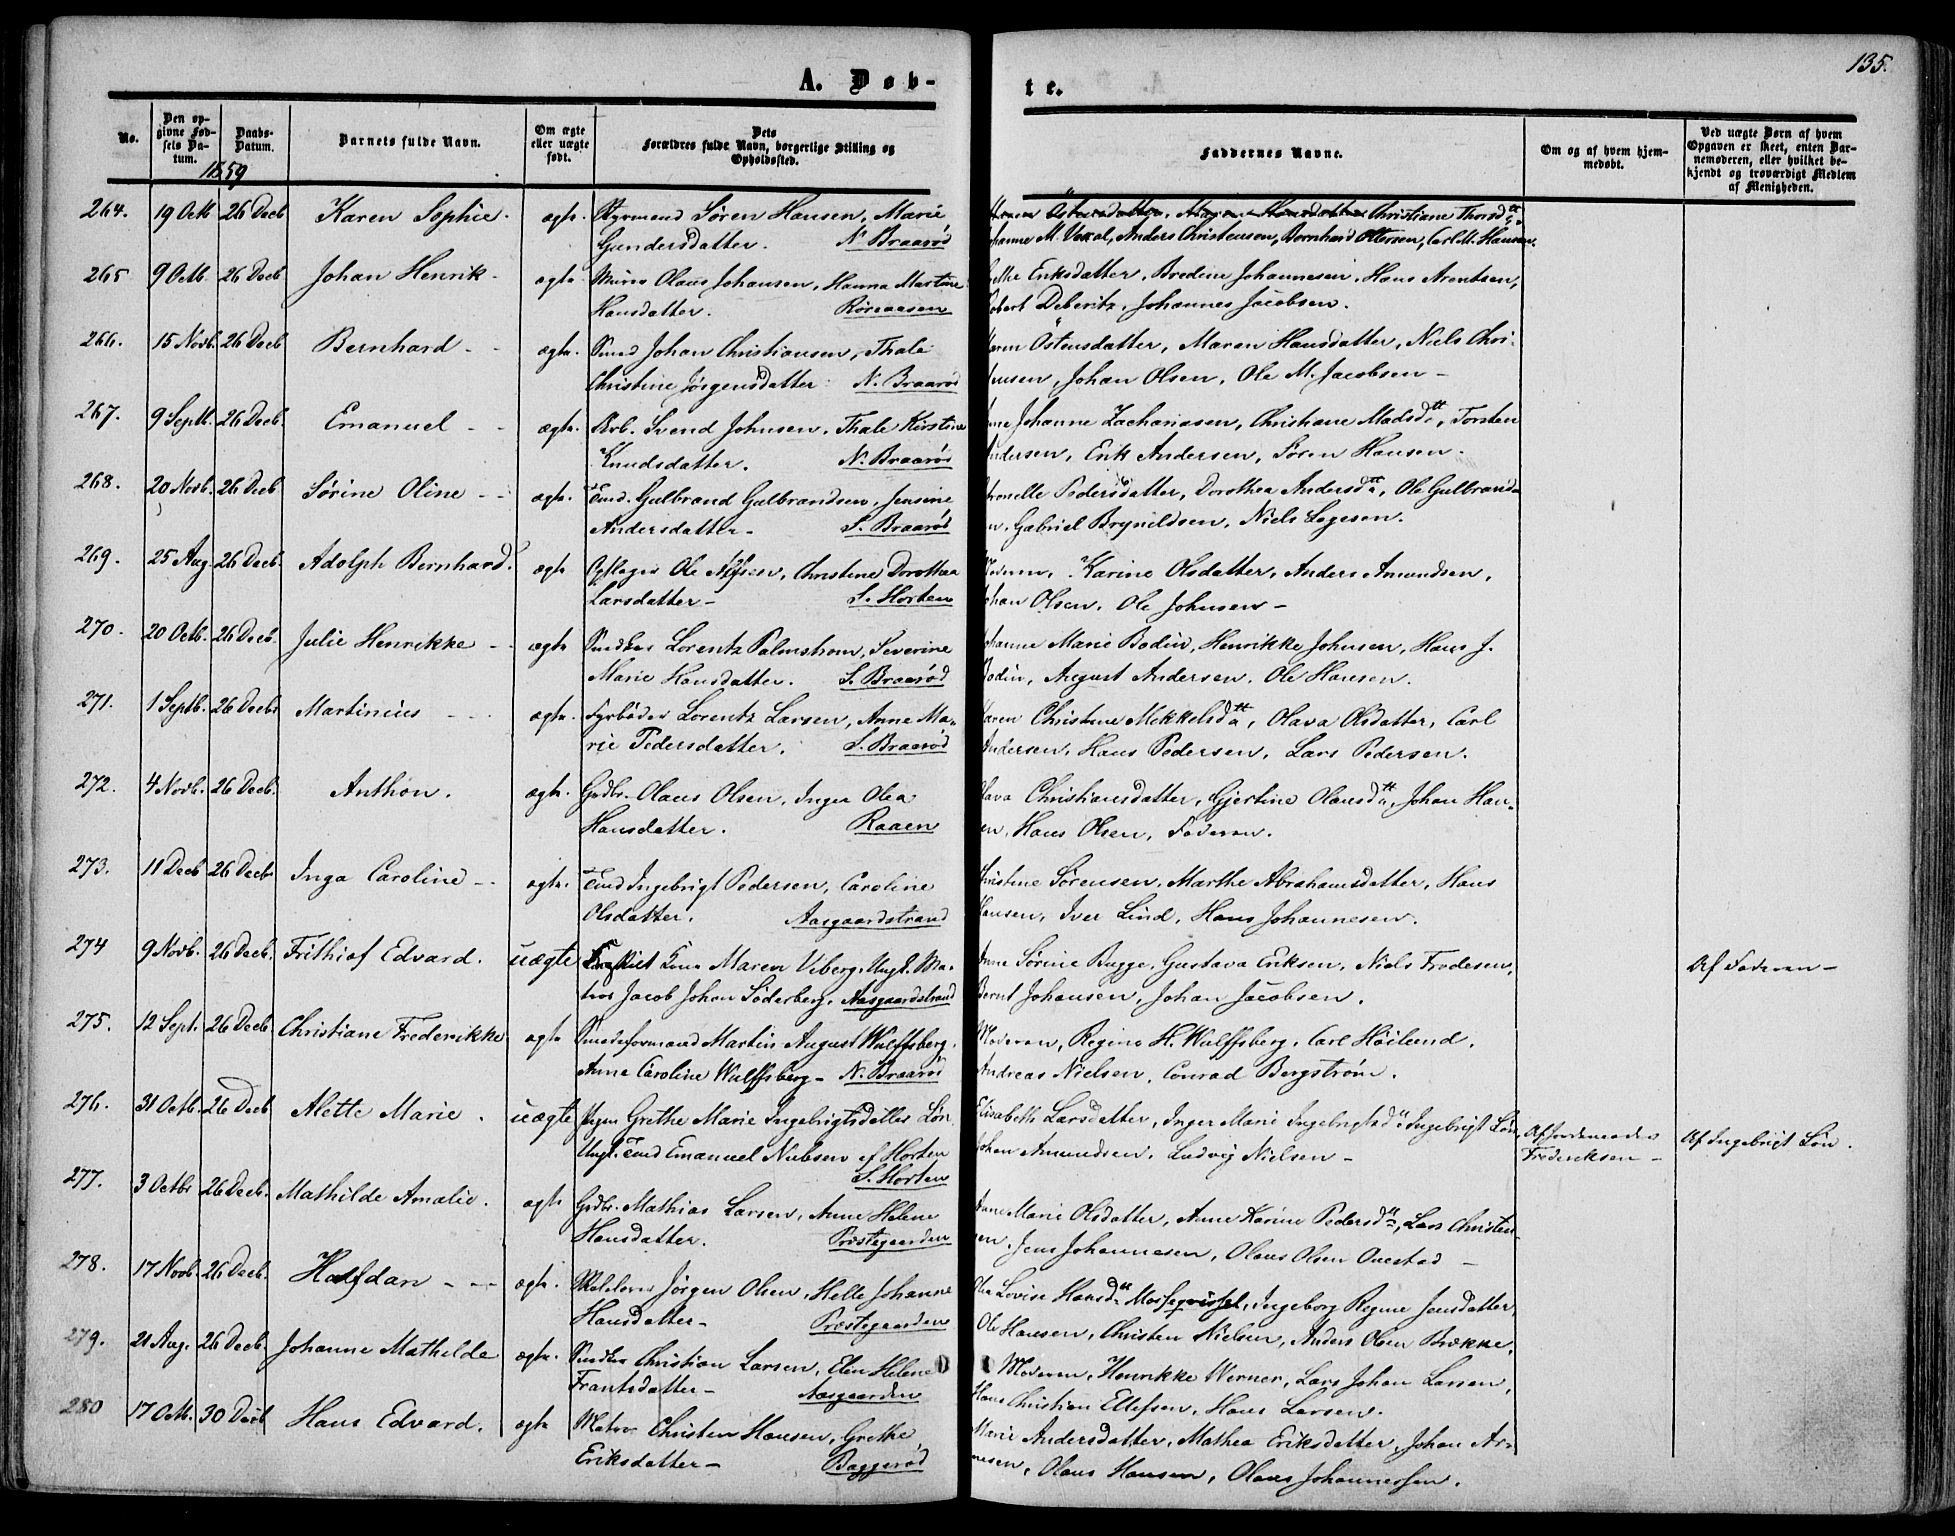 135.
A. Døb-
te.
No.
Den op-
givne Fød-
sels Da-
tum.
Daabs-
Datum.
Barnets fulde Navn.
Om ægte
eller uægte
født.
Dets
Forældres fulde Navn, borgerlige Stilling og
Opholdssted.
Faddernes Navne.
Om og af hvem hjem-
medøbt.
Ved uægte Børn af hvem
Opgaven er skeet, enten Bar-
nemoderen, eller hvilket be-
kjendt og troværdigt Medlem
af Menigheden.
1859
264. 19 Octb 26 Decb Karen Sophie. ægte. Styrmand Søren Hansen, Marie Christiane Thorsdtt
Gundersdatter. N. Braarød M. Vexal, Anders Christensen, Bernhard Ottersen, Carl M. Hansen.
265 9 Octb. 26 Decb Johan Henrik - ægte. Murer Olaus Johansen, Hanna Martine Eriksdatter, Bredine Johannesen, Hans Arentsen,
Hansdatter. Røreaasen Deberitz, Johannes Jacobsen.
266. 15 Novb. 26 Decb Bernhard - - ægte. Smed Johan Christiansen, Thale Östensdatter, Maren Hansdatter, Niels Chri-
Christine Jørgensdatter: N. Braarød Johan Olsen, Ole M. Jacobsen -
267. 9 Septb. 26 Decb. Emanuel - - ægte. Arb. Svend Johnsen, Thale Kirstine Johanne Zachariasen, Christiane Madsdtt, Torsten
Knudsdatter. N. Braarød Andersen, Erik Andersen, Søren Hansen.
268. 20 Novb. 26 Decb Sørine Oline - - ægte. Tmd. Gulbrand Gulbrandsen, Jensine Pedersdatter, Dorothea Andersdtt, Ole Gulbrand-
Andersdatter - S. Braarød Gabriel Brynildsen, Niels Legesen.
269. 25 Aug. 26 Decb. Adolph Bernhard. ægte Ole Christine Dorothea Moderen, Karine Olsdatter, Anders Amundsen,
Larsdatter - S. Horten Johan Olsen, Ole Johnsen -
270. 20 Octb. 26 Decb. Julie Henrikke - - ægte Lorentz Palmstrom, Severine Johanne Marie Bodin, Henrikke Johnsen, Hans J.
Marie Hansdatter. S. Braarød Bodin, August Andersen, Ole Hansen.
271. 1 Septb. 26 Decbr Martinius - - - ægte. Fyrbøder Lorentz Larsen, Anne Ma- Karen Christine Mikkelsdtt, Olava Olsdatter, Carl
rie Pedersdatter. S. Braarød Andersen, Hans Pedersen, Lars Pedersen.
272. 4 Novb. 26 Decb. Anthon. ægte. Grdbr. Olaus Olsen, Inger Olea Olava Christiansdatter, Gjertine Olausdtt, Johan Han-
Hansdatter. Raaen Hans Olsen, Faderen.
273. 11 Decb 26 Decbr Inga Caroline - - ægte. Tmd Ingebrigt Pedersen, Caroline Christine Sørensen, Marthe Abrahamsdatter, Hans
Olsdatter. Aasgaardstrand Hansen, Iver Lind, Hans Johannesen.
274 9 Novb. 26 Decb. Frithiof Edvard. uægte Kone Maren Viberg, Ungk. Ma- Anne Sørine Bugge, Gustava Eriksen, Niels Frodesen, Af Faderen -
tros Jacob Johan Søderberg. Aasgaardstrand Bernt Johansen, Johan Jacobsen.
275. 12 Sept. 26 Decb. Christiane Frederikke ægte Smedeformand Martin August Wulffsberg. Moderen, Regine H. Wulffsberg, Carl Høilund,
Anne Caroline Wulffsberg - N. Braarød Andreas Nielsen, Conrad Bergstrøm.
276. 31 Octb. 26 Decb Alette Marie. uægte Pigen Grethe Marie Ingebrigtsdatter Løn. Elisabeth Larsdatter, Inger Marie Ingebrigtsd. Ingebrigt Løn, Af Jordemoder Af Ingebrigt Løn.
Ungk. Tmd Emanuel Nielsen af Horten Johan Amundsen, Ludvig Nielsen - Frederiksen -
S. Horten
277. 3 Octbr 26 Decb. Mathilde Amalie. ægte Grdbr. Mathias Larsen, Anne Helene Anne Marie Olsdatter, Anne Karine Pedersdtt, Lars Christen-
Hansdatter. Præstegaarden Jens Johannesen, Olaus Olsen Ouestad -
278. 17 Novb. 26 Decb. Halfdan - - - ægte. Jørgen Olsen, Helle Johanne Lovise Hansdtt Ingeborg Regine Jensdatter,
Hansdatter - Præstegaarden Ole Hansen, Christen Nielsen, Anders Olsen Brekke.
279. 21 Aug. 26 Decb. Johanne Mathilde ægte. Christian Larsen, Elen Helene Moderen, Henrikke Werner, Lars Johan Larsen,
Frantsdatter - Aasgaarden Hans Christian Ellefsen, Hans Larsen.
280 17 Octb. 30 Decb Hans Edvard. ægte Matros Christen Hansen, Grethe Marie Andersdatter, Mathea Eriksdatter, Johan Ar-
Eriksdatter - Baggerød Olaus Hansen, Olaus Johannessen.